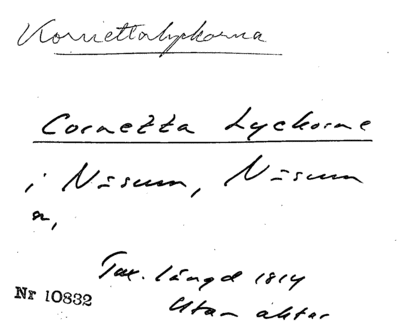 Kornettalyckorna
Cornetta Lyckorne
i Näsum, Näsum
n,
Tax. längd 1814
Nr 10832
Utan aktar